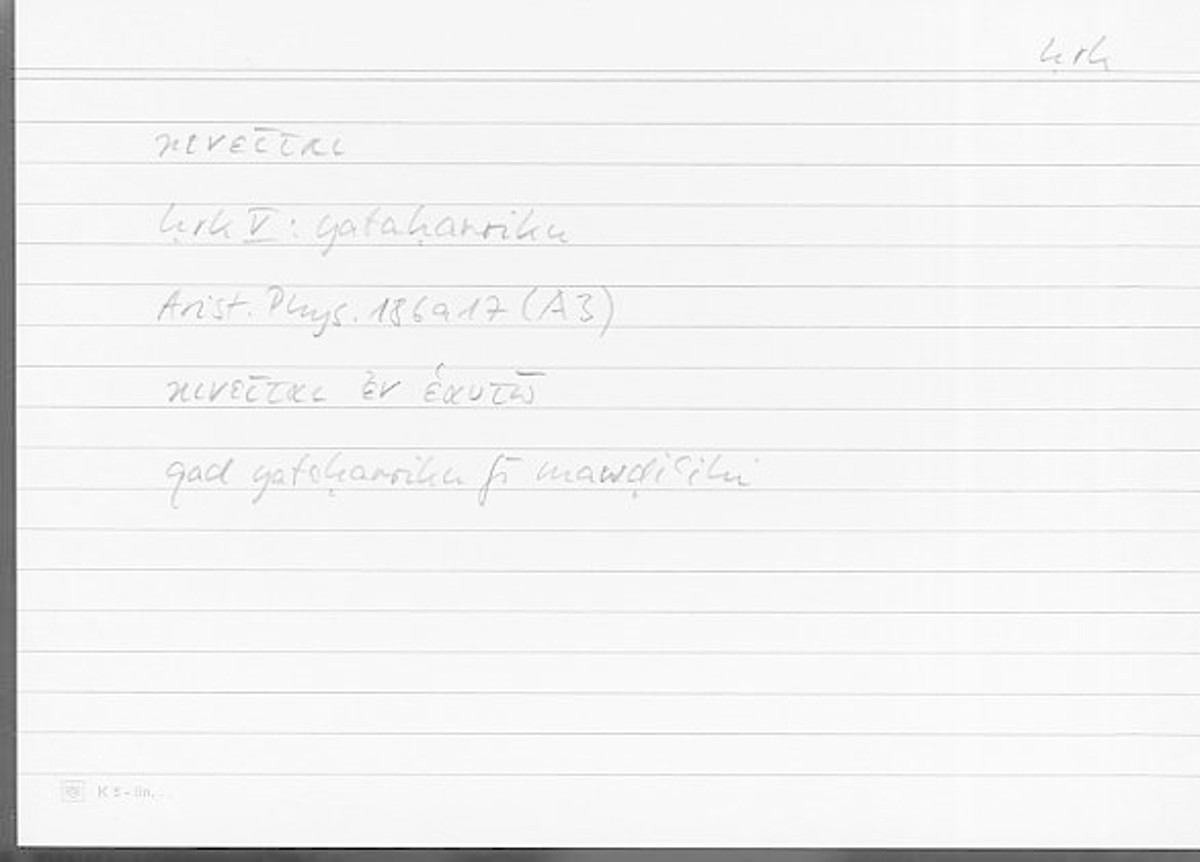 ḥrk
κινεῖται
ḥrk V: yataḥarriku
Arist. Phys. 186a17 (A3)
κινεῖται ἐν ἑαυτῷ
qad yataḥarriku fī mawḍiʿihi
K 5 - lin.